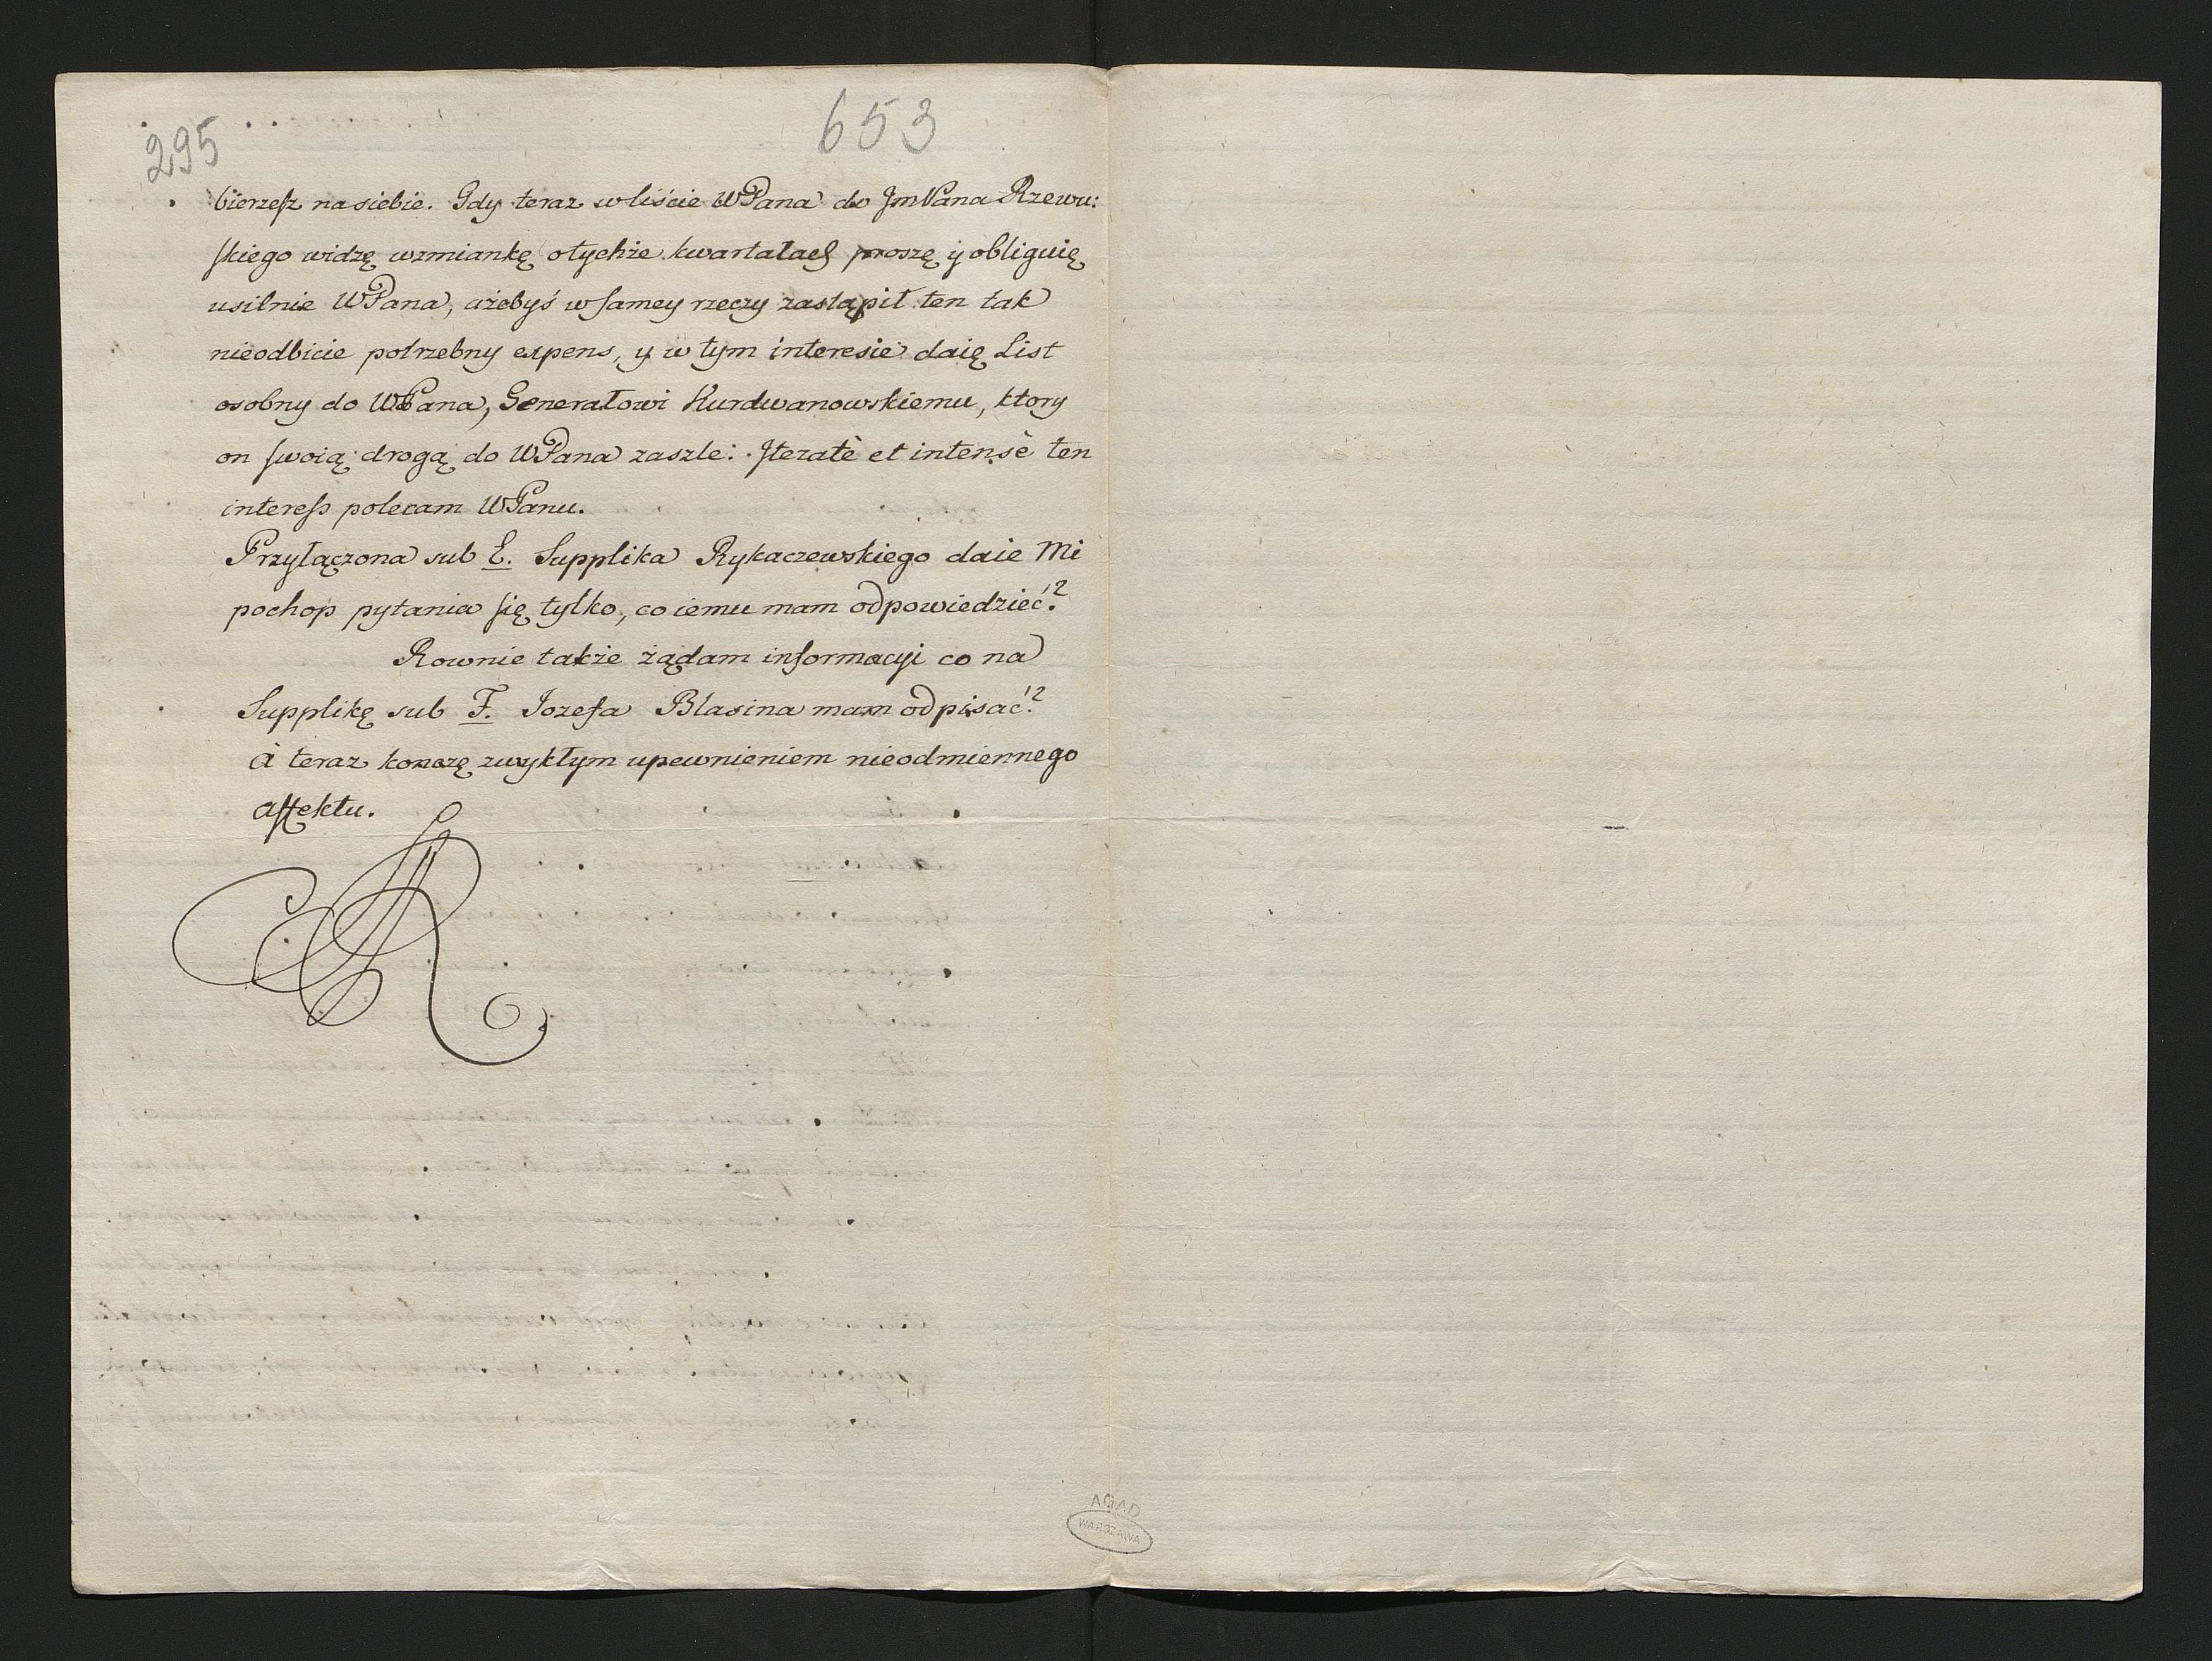 295
653
bierzesz na siebie. Gdy teraz w liście WPana do JmPana Rzewu:
skiego widzę wzmiankę o tychże kwartałach proszę y obliguię
usilnie WPana, ażebyś w samey rzeczy zastąpił ten tak
nieodbicie potrzebny expens, y w tym interesie daię List
osobny do WPana, Generałowi Kurdwanowskiemu, ktory
on swoią drogą do WPana zaszle. Iteratè et intensè ten
interess polecam WPanu.
Przyłączona sub E. Supplika Rykaczewskiego daie Mi
pochop pytania się tylko, co iemu mam odpowiedzieć?
Rownie także żądam informacyi co na
Supplikę sub F. Jozefa Blasina mam odpisać?
à teraz konczę zwykłym upewnieniem nieodmiennego
affektu.
AGAD
WARSZAWA